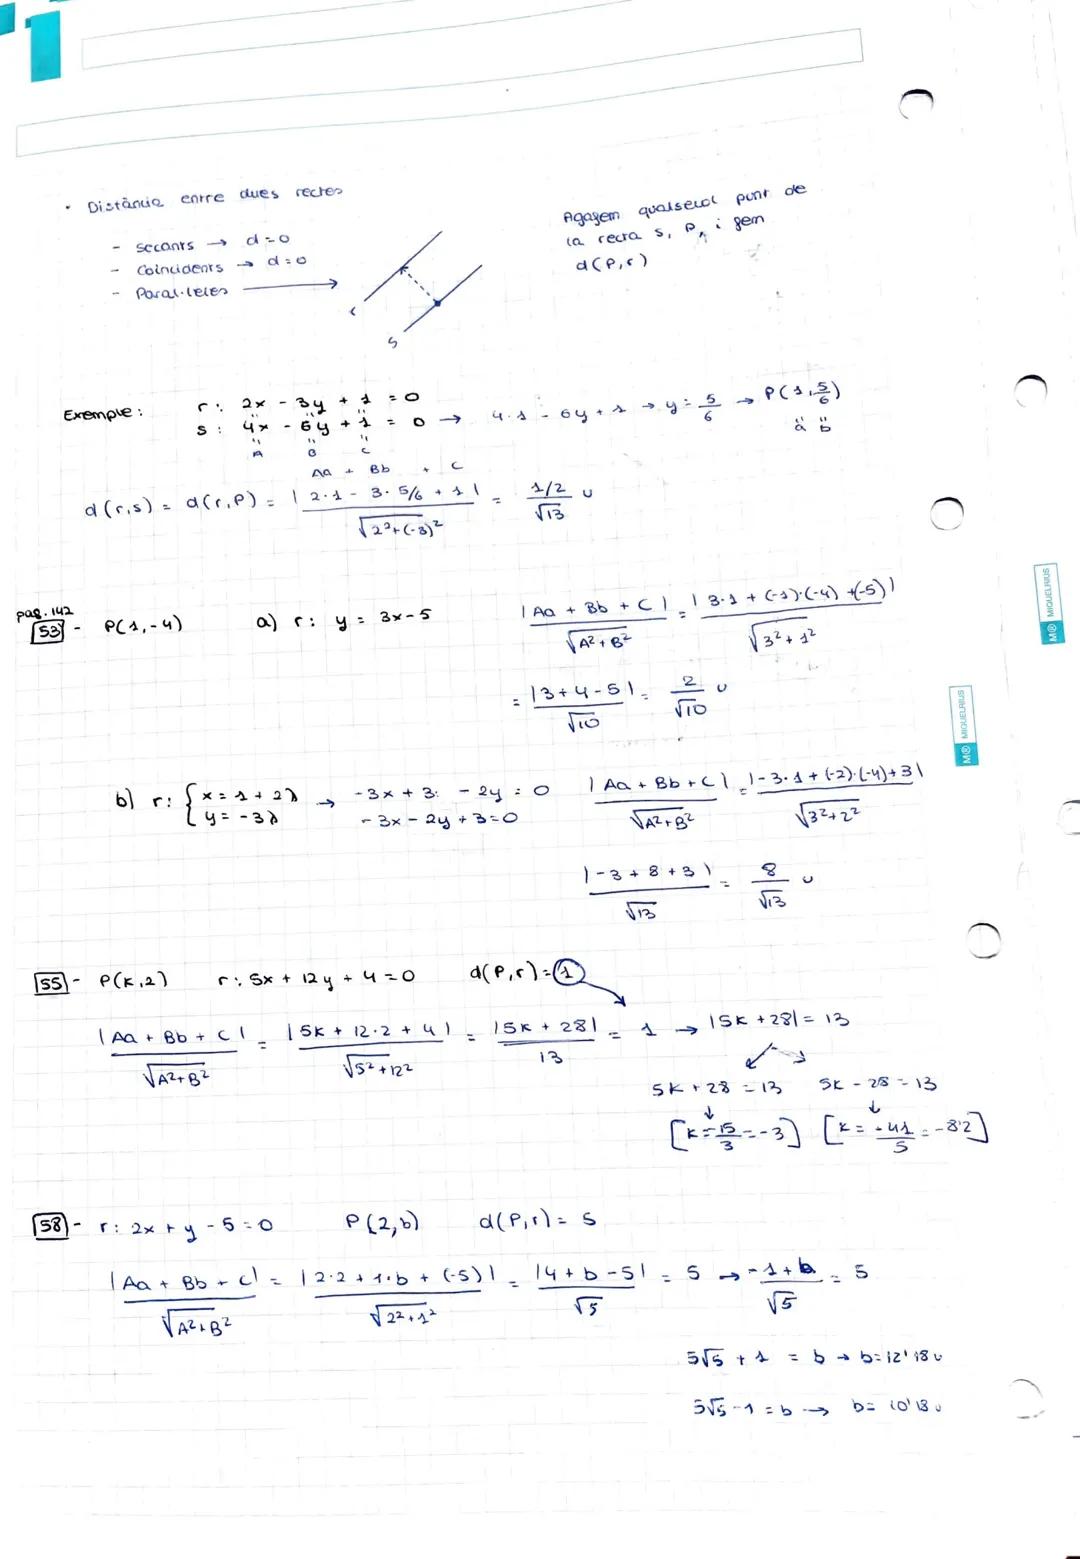 • Distància entre dues rectes
- secants → d=0
- Coincidents → d=0
- Paral·leles →
r
s
Agafem qualsevol punt de
la recta s, P, i fem
d(P,r)
Exemple: r: 2x - 3y + 1 = 0
s: 4x - 6y + 1 = 0 → 4·1 - 6y + 1 → y = 5/6 → P(1, 5/6)
A B C
a b
Aa + Bb + C
d(r,s) = d(r,P) = |2·1 - 3·5/6 + 1| / √2²+(-3)² = 1/2 / √13 u
pag. 142
53 - P(1,-4) a) r: y = 3x-5 |Aa + Bb + C| / √A²+B² = |3·1 + (-1)·(-4) + (-5)| / √3²+1²
= |3+4-5| / √10 = 2/√10 u
b) r: { x = 1 + 2λ → -3x + 3 - 2y = 0
y = -3λ -3x - 2y + 3 = 0
|Aa + Bb + C| / √A²+B² = |-3·1 + (-2)·(-4)+3| / √3²+2²
|-3 + 8 + 3| / √13 = 8/√13 u
55 - P(k,2) r: 5x + 12y + 4 = 0 d(P,r) = 1
|Aa + Bb + C| / √A²+B² = |5k + 12·2 + 4| / √5²+12² = |5k + 28| / 13 = 1 → |5k + 28| = 13
5k + 28 = 13 5k - 28 = 13
[k = -15/3 = -3] [k = -41/5 = -8'2]
58 - r: 2x + y - 5 = 0 P(2,b) d(P,r) = 5
|Aa + Bb + C| / √A²+B² = |2·2 + 1·b + (-5)| / √2²+1² = |4 + b - 5| / √5 = 5 → -1 + b / √5 = 5
5√5 + 1 = b → b = 12'18 u
5√5 - 1 = b → b = 10'18 u
M® MIQUELRIUS
M® MIQUELRIUS